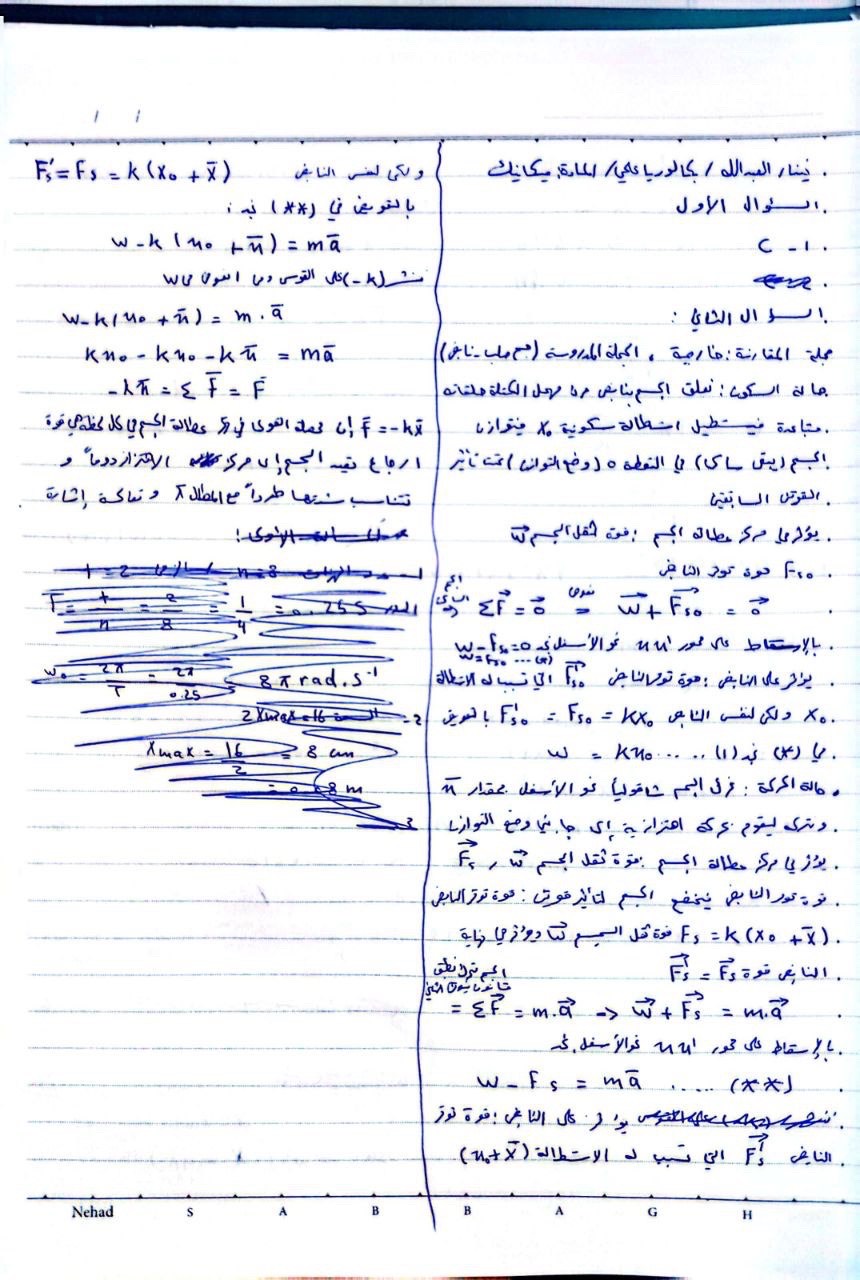 نينار العبدالله / بكالوريا علمي / المادة: ميكانيك
السؤال الأول
1 - C
السؤال الثاني:
جملة المقارنة: خارجية ، الجملة المدروسة (جسم صلب - نابض)
حالة السكون: نعلق الجسم بنابض مرن مهمل الكتلة حلقاته
متباعدة فيستطيل استطالة سكونية x₀ فيتوازن
الجسم (يبقى ساكن) في النقطة o (وضع التوازن) تحت تأثير
القوتين السابقتين
يؤثر في مركز عطالة الجسم : قوة ثقل الجسم W⃗
Fs₀ قوة توتر النابض
الجسم ساكن => ΣF⃗ = 0⃗ نعوض = W⃗ + F⃗s₀ = 0⃗
بالإسقاط على محور xx' نحو الأسفل نجد W - Fs₀ = 0
W = Fs₀ ... (*)
يؤثر على النابض : قوة توتر النابض F⃗'s₀ التي تسبب له الاستطالة
x₀ ولكن لنفس النابض F's₀ = Fs₀ = kx₀ بالتعويض
في (*) نجد (1) .... W = kx₀
حالة الحركة : نزل الجسم شاقولياً نحو الأسفل بمقدار x̄
ونتركه ليقوم بحركة اهتزازية إلى جانبي وضع التوازن
يؤثر في مركز عطالة الجسم : قوة ثقل الجسم W⃗ , F⃗s
قوة توتر النابض يخضع الجسم لتأثير قوتين : قوة توتر النابض
Fs = k(x₀ + x̄) قوة ثقل الجسم W⃗ ويؤثر في نهاية
النابض قوة F⃗s = F⃗'s
الجسم متحرك نطبق
قانون نيوتن الثاني
= ΣF⃗ = m.a⃗ -> W⃗ + F⃗s = m.a⃗
بالإسقاط على محور xx' نحو الأسفل نجد
W - Fs = mā ..... (**)
يؤثر على النابض : قوة توتر
النابض F⃗'s التي تسبب له الاستطالة (x₀+x̄)
ولكن لنفس النابض F's = Fs = k(x₀ + x̄)
بالتعويض في (**) نجد :
W - k(x₀ + x̄) = mā
ننشر (-k) على القوس ومن العوض في W
W - k(x₀ + x̄) = m.ā
kx₀ - kx₀ - kx̄ = mā
-kx̄ = ΣF̄ = F̄
F̄ = -kx̄ إن محصلة القوى في مركز عطالة الجسم في كل لحظة هي قوة
ارجاع تعيد الجسم إلى مركز الاهتزاز دوماً و
تتناسب شدتها طرداً مع المطال x̄ و تعاكسه إشارة
t = 2 n = 8
T = t/n = 2/8 = 1/4 = 0.25 s
w₀ = 2π/T = 2π/0.25 8π rad.s⁻¹
2- 2Xmax = 16
Xmax = 16/2 = 8 cm
= 0.08 m
3
Nehad S A B B A G H